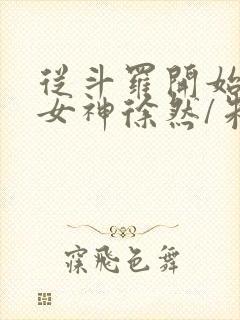 從斗羅開始
女神徐然/朱
寐飛色舞